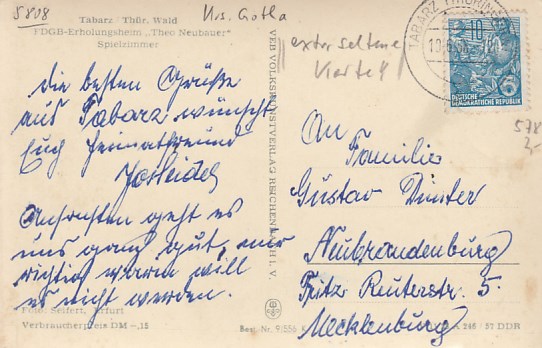 5808
Krs. Gotha
Tabarz / Thür. Wald
FDGB-Erholungsheim „Theo Neubauer"
Spielzimmer
extra seltene
Karte!!
TABARZ (THÜRINGEN
10
DEUTSCHE
DEMOKRATISCHE REPUBLIK
578
2,-
Die besten Grüße
aus Tabarz wünscht
Euch Heimatfreund
Ansonsten geht es
uns ganz gut, nur
richtig warm will
es nicht werden.
VEB VOLKSKUNSTVERLAG REICHENBACH I. V.
An
Familie
Gustav Dinter
Neubrandenburg
Fritz Reuterstr. 5
Mecklenburg
Foto: Seifert, Erfurt
Verbraucherpreis DM -,15
Best.-Nr. 9/556
246 / 57 DDR